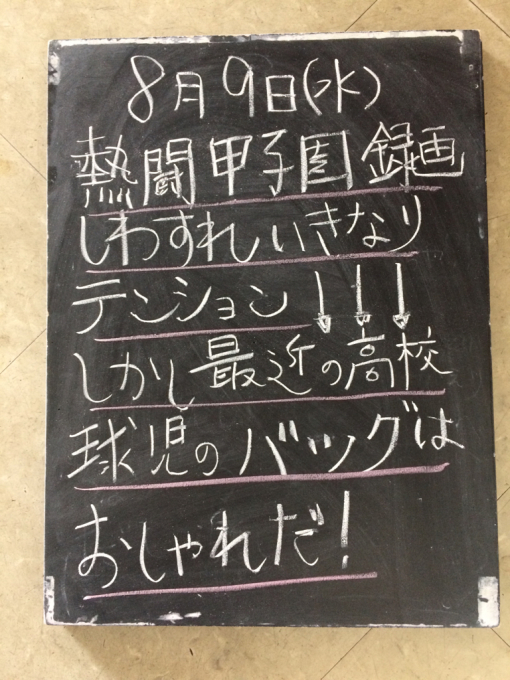 8月9日(水)
熱闘甲子園録画
しわすれいきなり
テンション↓↓↓
しかし最近の高校
球児のバッグは
おしゃれだ!